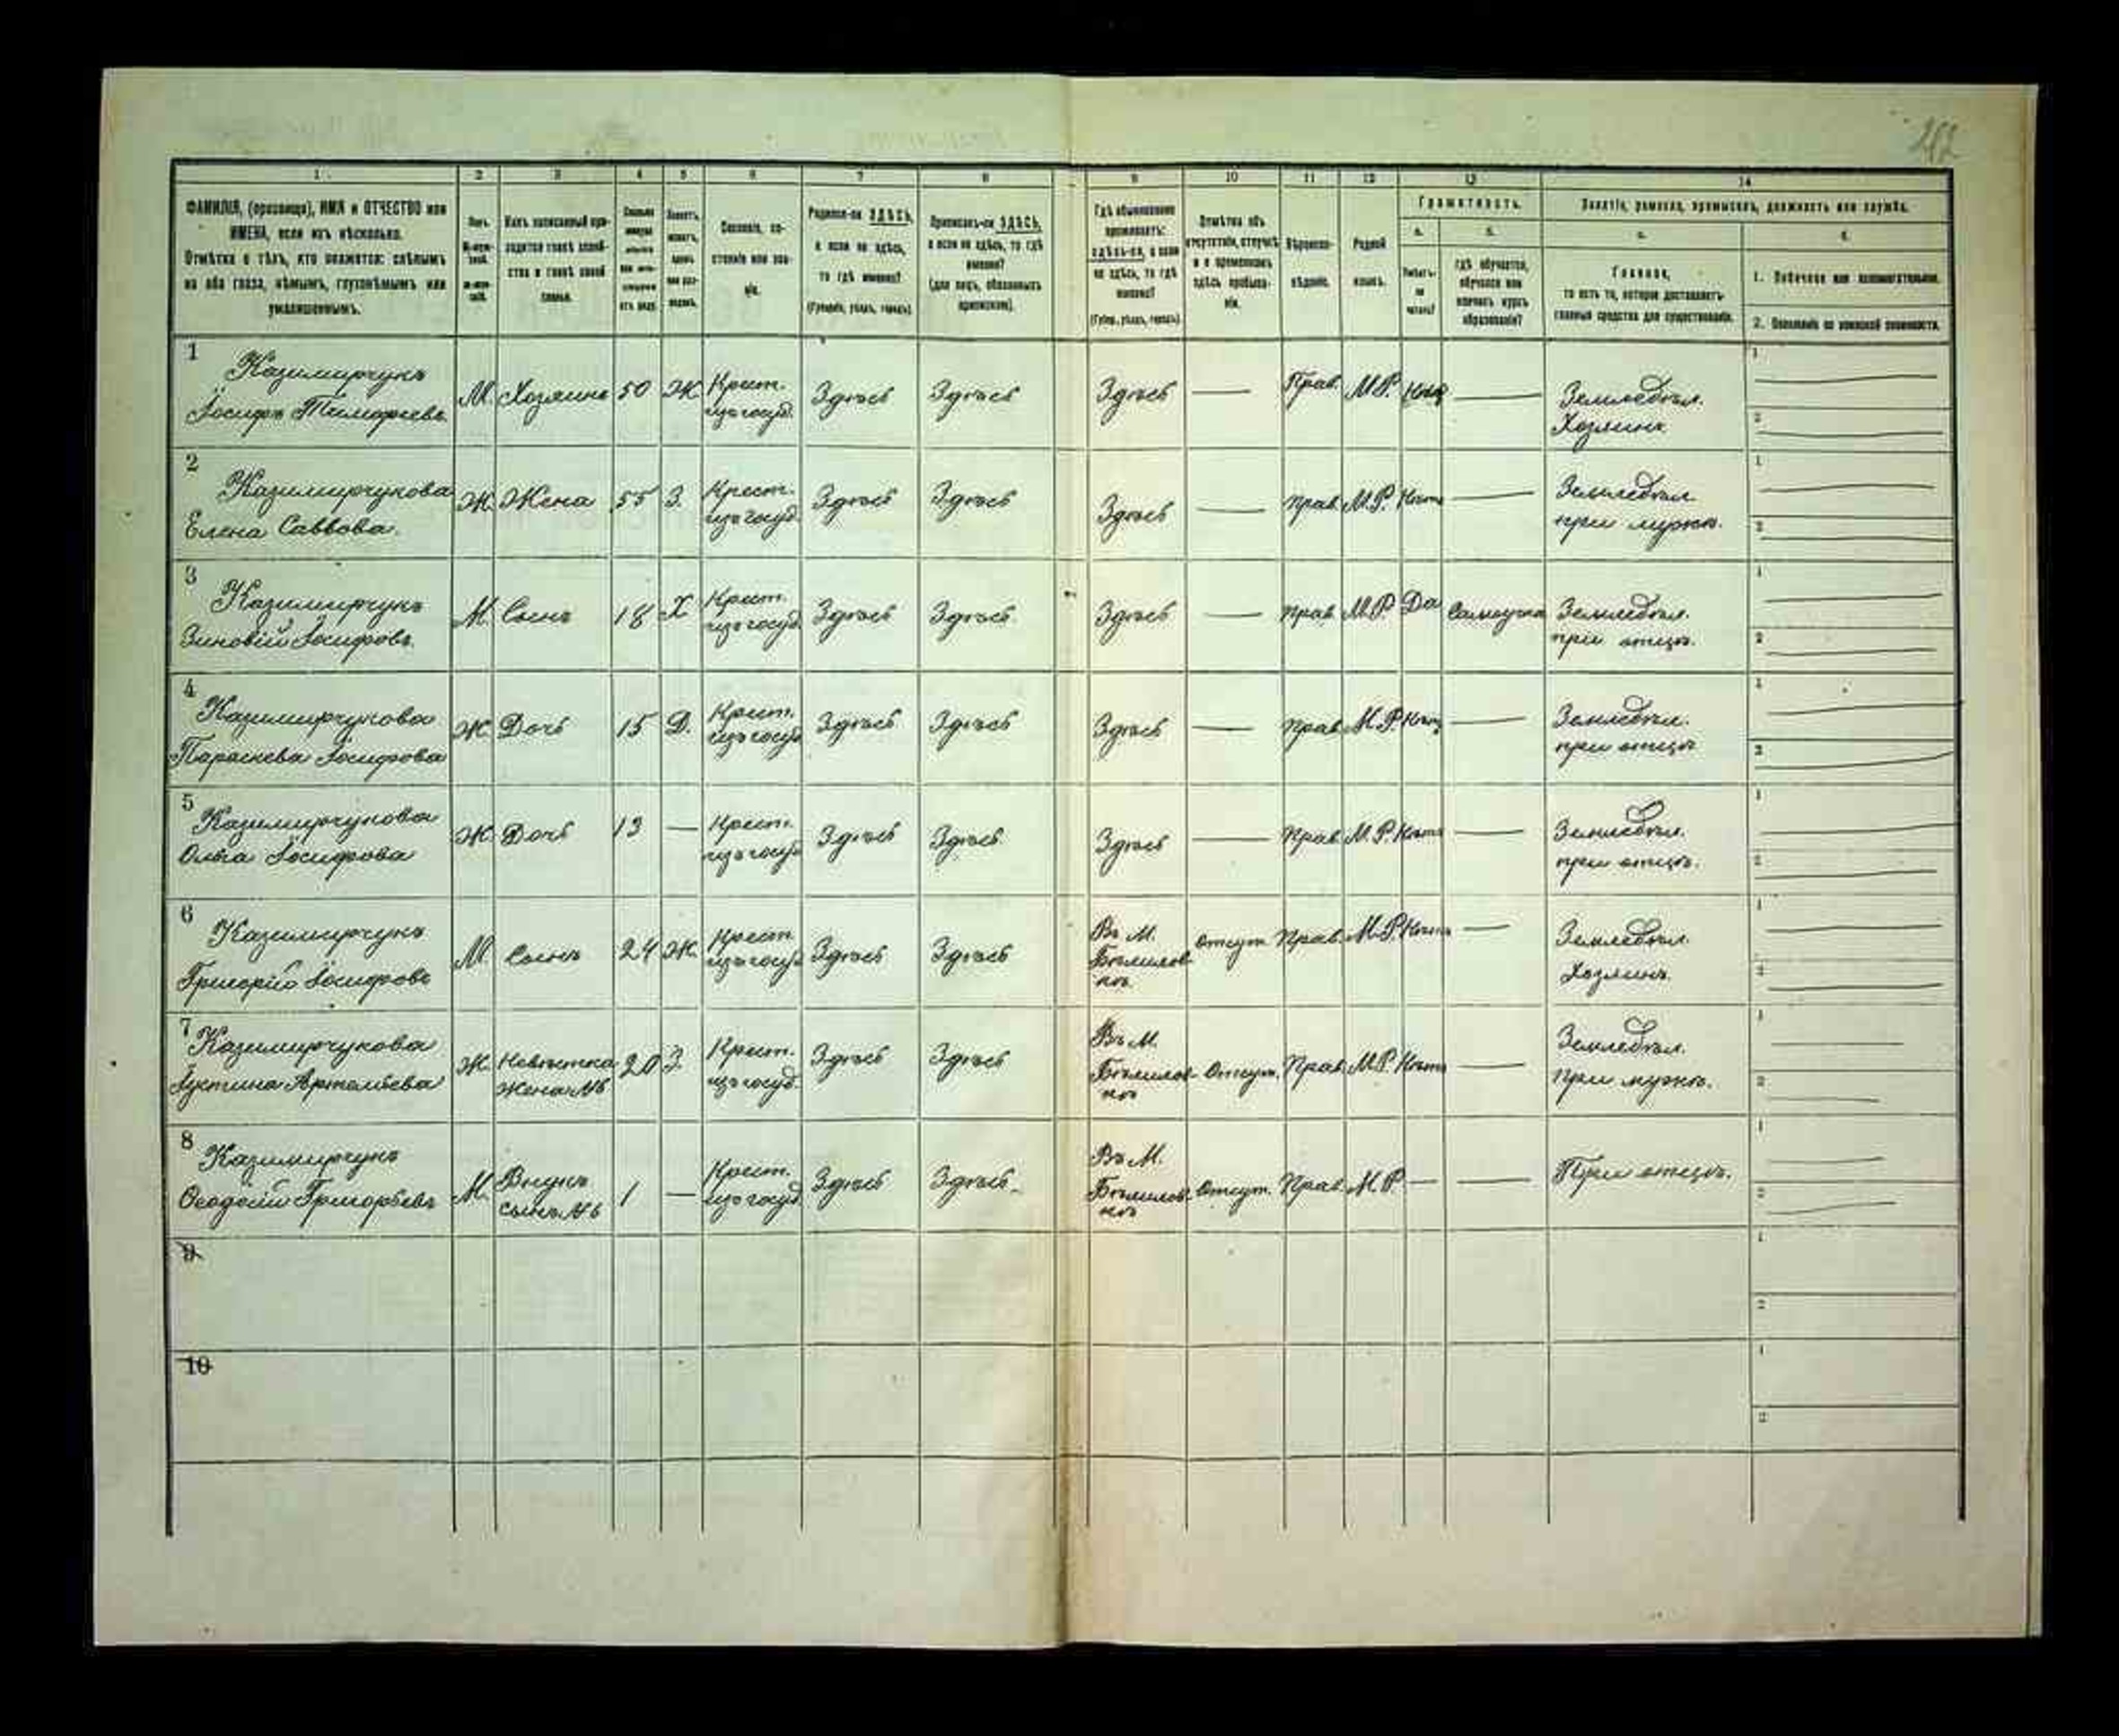 212
1 2 3 4 5 6 7 8 9 10 11 12 13 14
ФАМИЛІЯ, (прозвище), ИМЯ и ОТЧЕСТВО или
ИМЕНА, если ихъ нѣсколько.
Отмѣтка о тѣхъ, кто окажется: слѣпымъ
на оба глаза, нѣмымъ, глухонѣмымъ или
умалишеннымъ.
Полъ.
Какъ записанный при-
ходится главѣ хозяй-
ства и главѣ своей
семьи.
Сословіе, со-
стояніе или зва-
ніе.
Родился-ли ЗДѢСЬ,
а если не здѣсь,
то гдѣ именно?
(Губернія, уѣздъ, городъ)
Приписанъ-ли ЗДѢСЬ,
а если не здѣсь, то гдѣ
именно?
(для лицъ, обязанныхъ
припискою).
Гдѣ обыкновенно
проживаетъ:
здѣсь-ли, а если
не здѣсь, то гдѣ
именно?
(Губер., уѣздъ, городъ).
Отмѣтка объ
отсутствіи, отлучкѣ
и о временномъ
здѣсь пребыва-
ніи.
Вѣроиспо-
вѣданіе.
Родной
языкъ.
Грамотность.
а. б.
Умѣетъ-
ли
читать?
гдѣ обучается,
обучался или
кончилъ курсъ
образованія?
Занятіе, ремесло, промыселъ, должность или служба.
а. б.
Главное,
то есть то, которое доставляетъ
главныя средства для существованія.
1. Побочное или вспомогательное.
2. Положеніе по воинской повинности.
1 Казимирчукъ
Іосифъ Тимофеевъ М. Хозяинъ 50 Ж Крест. изъ госуд. Здѣсь Здѣсь Здѣсь — Прав. М.Р. Нѣтъ — Земледѣл. Хозяинъ 1 — 2 —
2 Казимирчукова
Елена Саввова. Ж. Жена 55 З. Крест. изъ госуд. Здѣсь Здѣсь Здѣсь — Прав. М.Р. Нѣтъ — Земледѣл. при мужѣ. 1 — 2 —
3 Казимирчукъ
Зиновій Іосифовъ. М. Сынъ 18 Х Крест. изъ госуд. Здѣсь Здѣсь Здѣсь — Прав. М.Р. Да Самоучка Земледѣл. при отцѣ. 1 — 2 —
4 Казимирчукова
Параскева Іосифова Ж. Дочь 15 Д. Крест. изъ госуд. Здѣсь Здѣсь Здѣсь — Прав. М.Р. Нѣтъ — Земледѣл. при отцѣ 1 — 2 —
5 Казимирчукова
Ольга Іосифова Ж. Дочь 13 — Крест. изъ госуд. Здѣсь Здѣсь Здѣсь — Прав. М.Р. Нѣтъ — Земледѣл. при отцѣ. 1 — 2 —
6 Казимирчукъ
Григорій Іосифовъ М. Сынъ 24 Ж. Крест. изъ госуд. Здѣсь Здѣсь Въ М. Бѣлилов- кѣ. Отсут. Прав. М.Р. Нѣтъ — Земледѣл. Хозяинъ. 1 — 2 —
7 Казимирчукова
Іустина Артемьева Ж. Невѣстка жена №6 20 З. Крест. изъ госуд. Здѣсь Здѣсь Въ М. Бѣлилов- кѣ Отсут. Прав. М.Р. Нѣтъ — Земледѣл. При мужѣ. 1 — 2 —
8 Казимирчукъ
Ѳеодосій Григорьевъ М. Внукъ сынъ №6 1 — Крест. изъ госуд. Здѣсь Здѣсь Въ М. Бѣлилов- кѣ Отсут. Прав. М.Р — — При отцѣ. 1 — 2 —
9 1 2
10 1 2